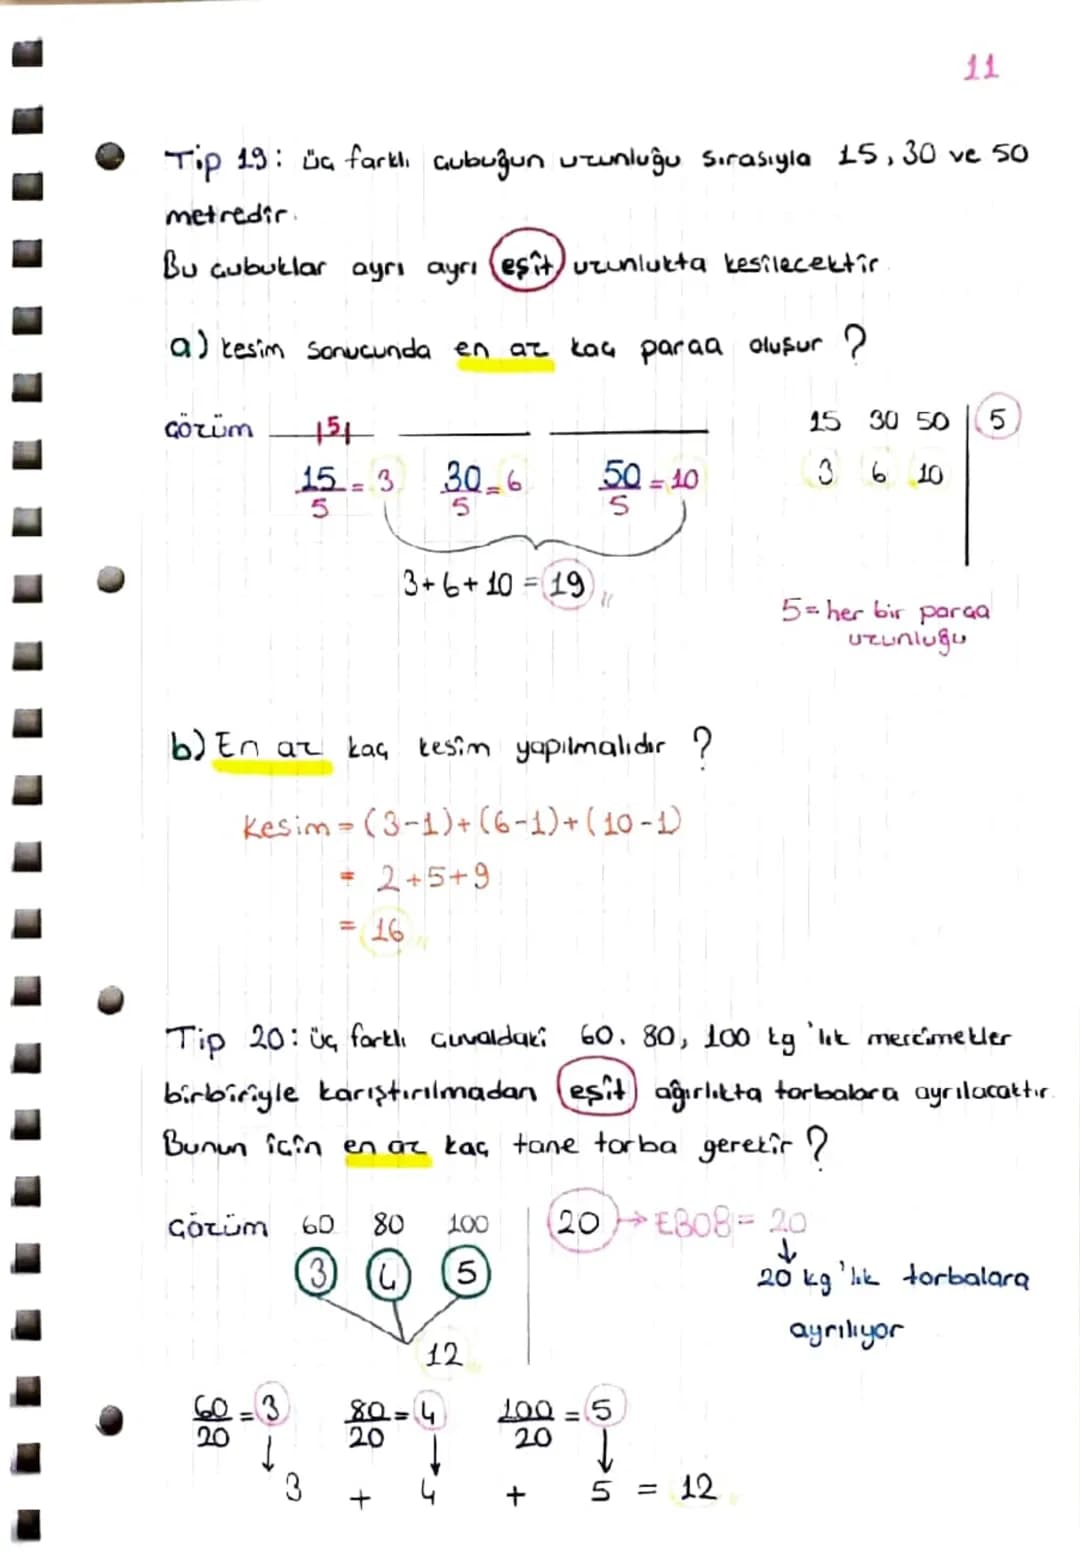 11
Tip 19: üç farklı çubuğun uzunluğu sırasıyla 15, 30 ve 50
metredir.
Bu çubuklar ayrı ayrı eşit uzunlukta kesilecektir.
a) kesim sonucunda en az kaç parça oluşur ?
çözüm 5
15/5 = 3 30/5 = 6 50/5 = 10
3+6+10 = 19
15 30 50 | 5
3 6 10
5= her bir parça
uzunluğu
b) En az kaç kesim yapılmalıdır ?
Kesim = (3-1)+(6-1)+(10-1)
= 2+5+9
= 16
Tip 20: üç farklı çuvaldaki 60, 80, 100 kg'lık mercimekler
birbiriyle karıştırılmadan eşit ağırlıkta torbalara ayrılacaktır.
Bunun için en az kaç tane torba gerekir ?
Çözüm 60 80 100 | 20 → EBOB = 20
3 4 5
12
↓
20 kg'lık torbalara
ayrılıyor
60/20 = 3 80/20 = 4 100/20 = 5
↓ ↓ ↓
3 + 4 + 5 = 12